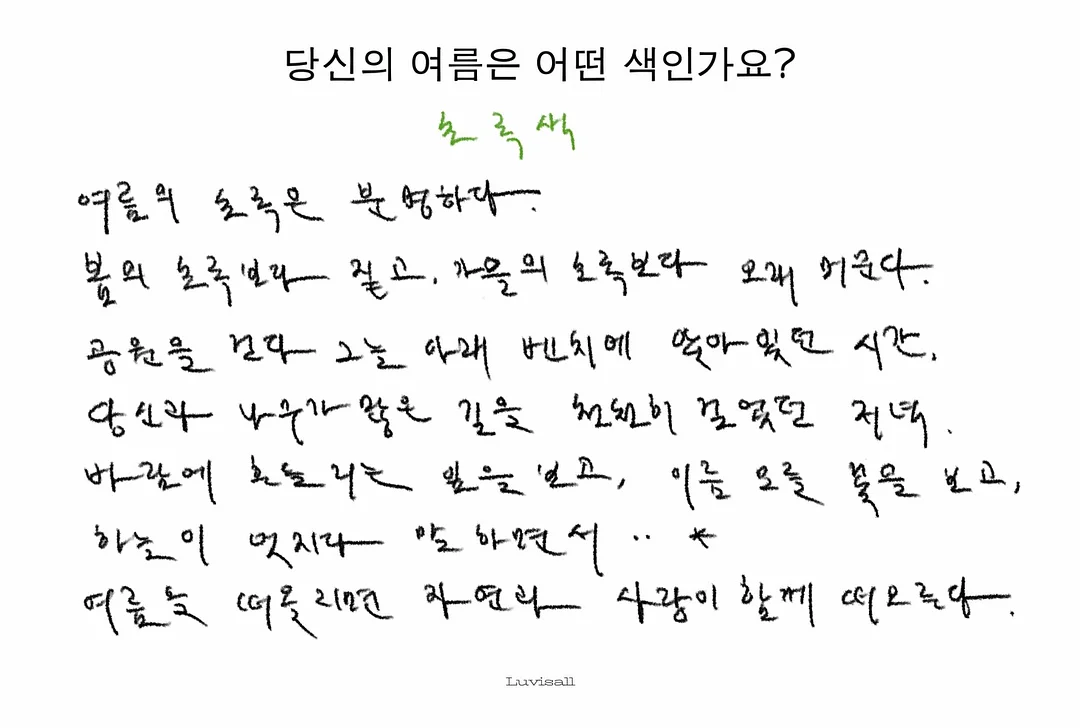 당신의 여름은 어떤 색인가요?
초록색
여름의 초록은 분명하다.
봄의 초록보다 짙고, 가을의 초록보다 오래 머문다.
공원을 걷다 그늘 아래 벤치에 앉아있던 시간,
당신과 나무가 많은 길을 천천히 걸었던 저녁.
바람에 흔들리는 잎을 보고, 이름 모를 꽃을 보고,
하늘이 멋지다 말하면서 .. *
여름을 떠올리면 자연과 사랑이 함께 떠오른다.
Luvisall